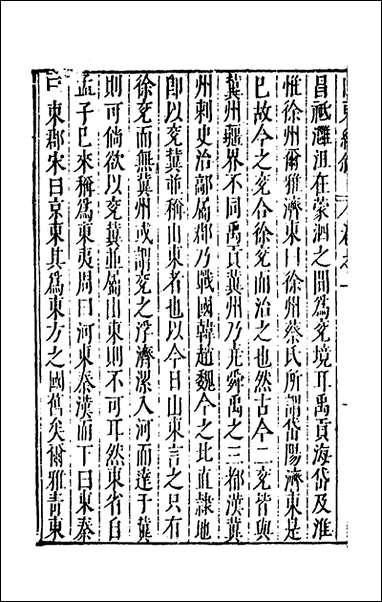 昌祗灉沮在蒙泗之間爲兗境耳禹貢海岱及淮
惟徐州爾雅濟東曰徐州蔡氏所謂岱陽濟東是
巳故今之兗合徐兗而治之也然古今二兗皆與
冀州疆界不同禹貢冀州乃并舜禹之三都漢冀
州刺史治鄗屬郡乃戰國韓趙魏今之比直隷地
卽以兗冀並稱山東者也以今日山東言之只有
徐兗而無冀州或謂兗之浮濟漯入河而達于冀
則可倘欲以兗冀並屬山東則不可耳然東省自
孟子巳來稱爲東夷周曰河東秦漢而下曰東秦
曰東郡宋曰京東其爲東方之國舊矣爾雅青東